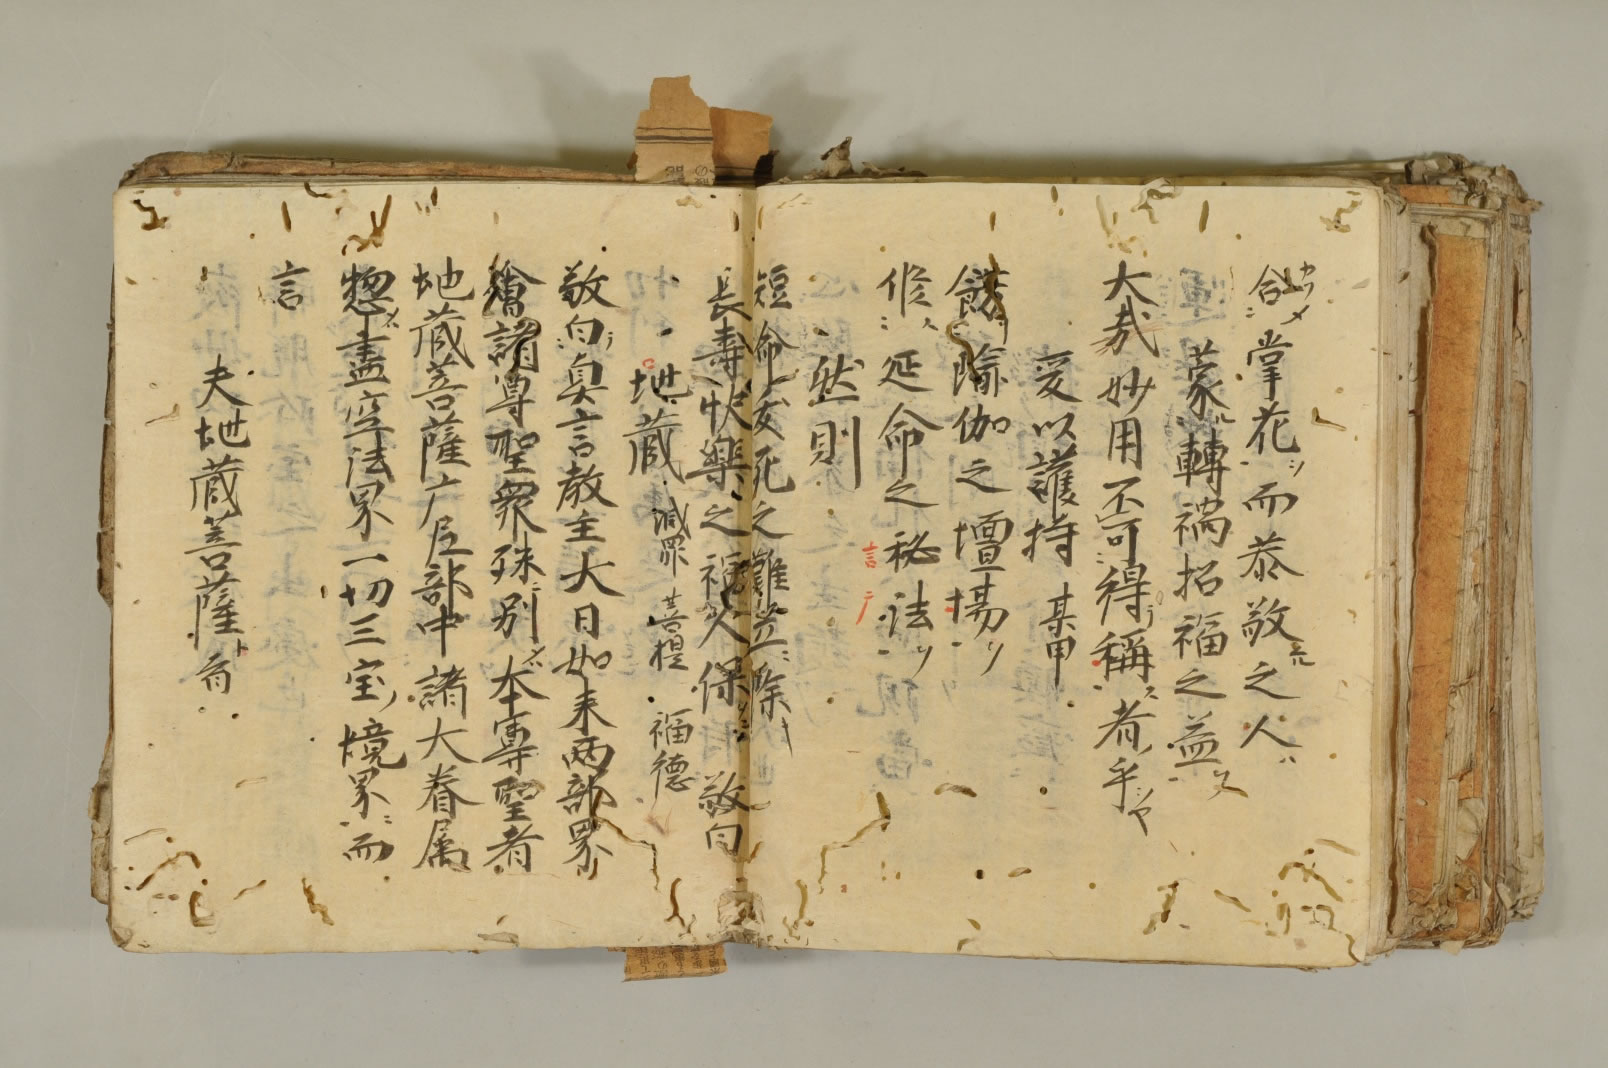 合掌花而恭敬之人
蒙轉禍招福之益
大哉妙用不可得稱者乎
爰以護持 某甲
餝瑜伽之壇場
修延命之秘法
言
然則
短命夭死之難並除
長壽快樂之福久保 敬白
地蔵 滅罪 菩提 福徳
敬白真言教主大日如来両部界
會諸尊聖衆殊別本尊聖者
地蔵菩薩广后部中諸大眷属
惣盡空法界一切三宝境界而
言
夫地蔵菩薩者